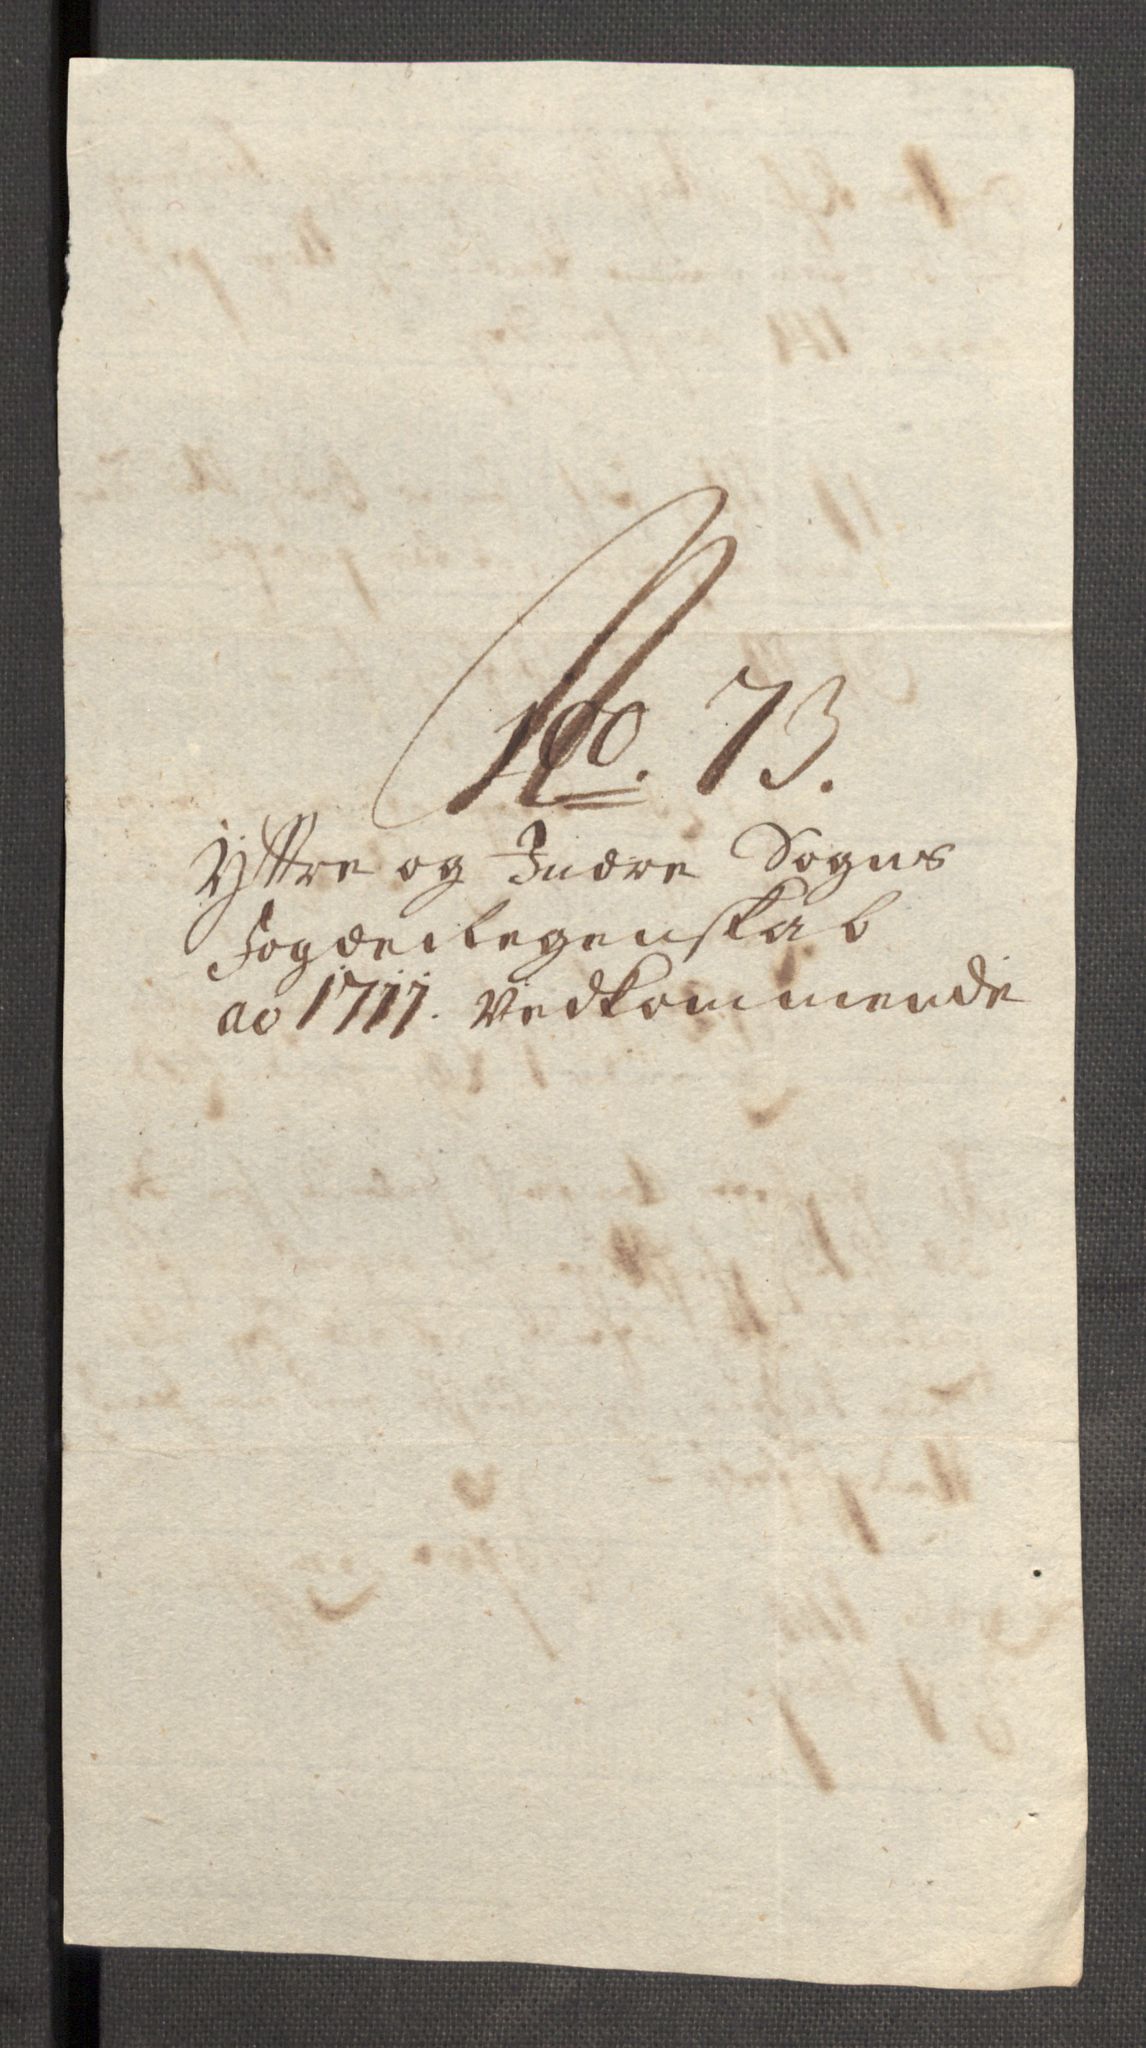 No. 73.
Ÿttre og Indre Sogns
Fogderiegenskab
ao 1717. Vedkommende